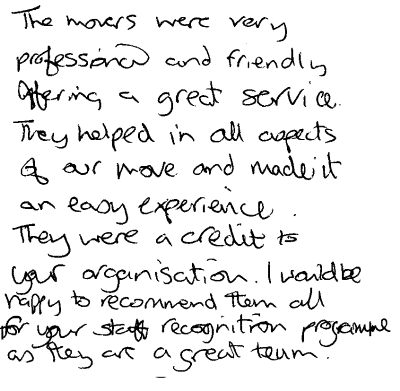 The movers were very
professional and friendly
offering a great service.
They helped in all aspects
of our move and made it
an easy experience.
They were a credit to
your organisation. I would be
happy to recommend them all
for your staff recognition programme
as they are a great team.